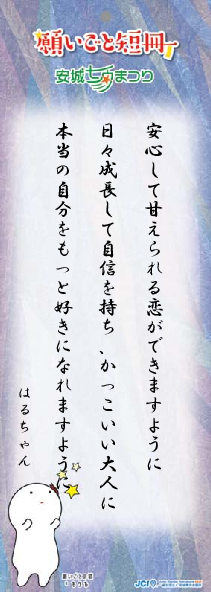 願いごと短冊
安城七夕まつり
安心して甘えられる恋ができますように
日々成長して自信を持ち、かっこいい大人に
本当の自分をもっと好きになれますように
はるちゃん
願いごと短冊
JCI